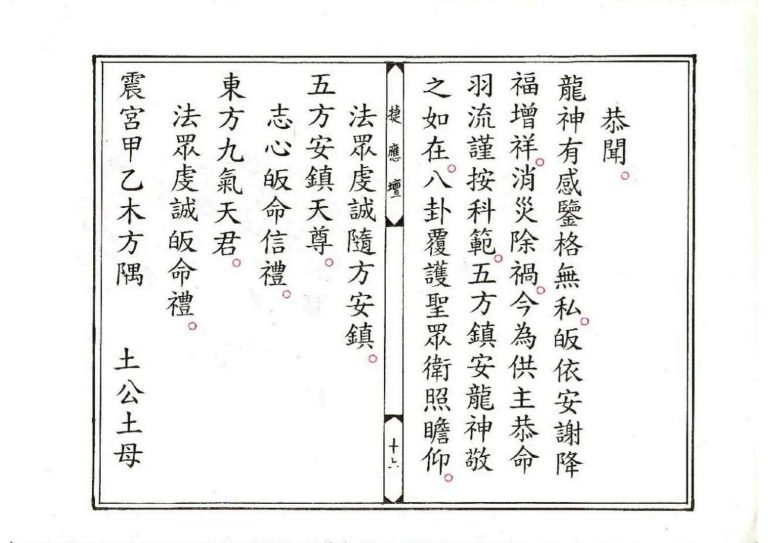 恭聞。
龍神有感鑒格無私。皈依安謝降
福增祥。消災除禍。今為供主恭命
羽流謹按科範。五方鎮安龍神敬
之如在。八卦覆護聖眾衛照瞻仰。
捷應壇
十六
法眾虔誠隨方安鎮。
五方安鎮天尊。
志心皈命信禮。
東方九氣天君。
法眾虔誠皈命禮。
震宮甲乙木方隅　土公土母